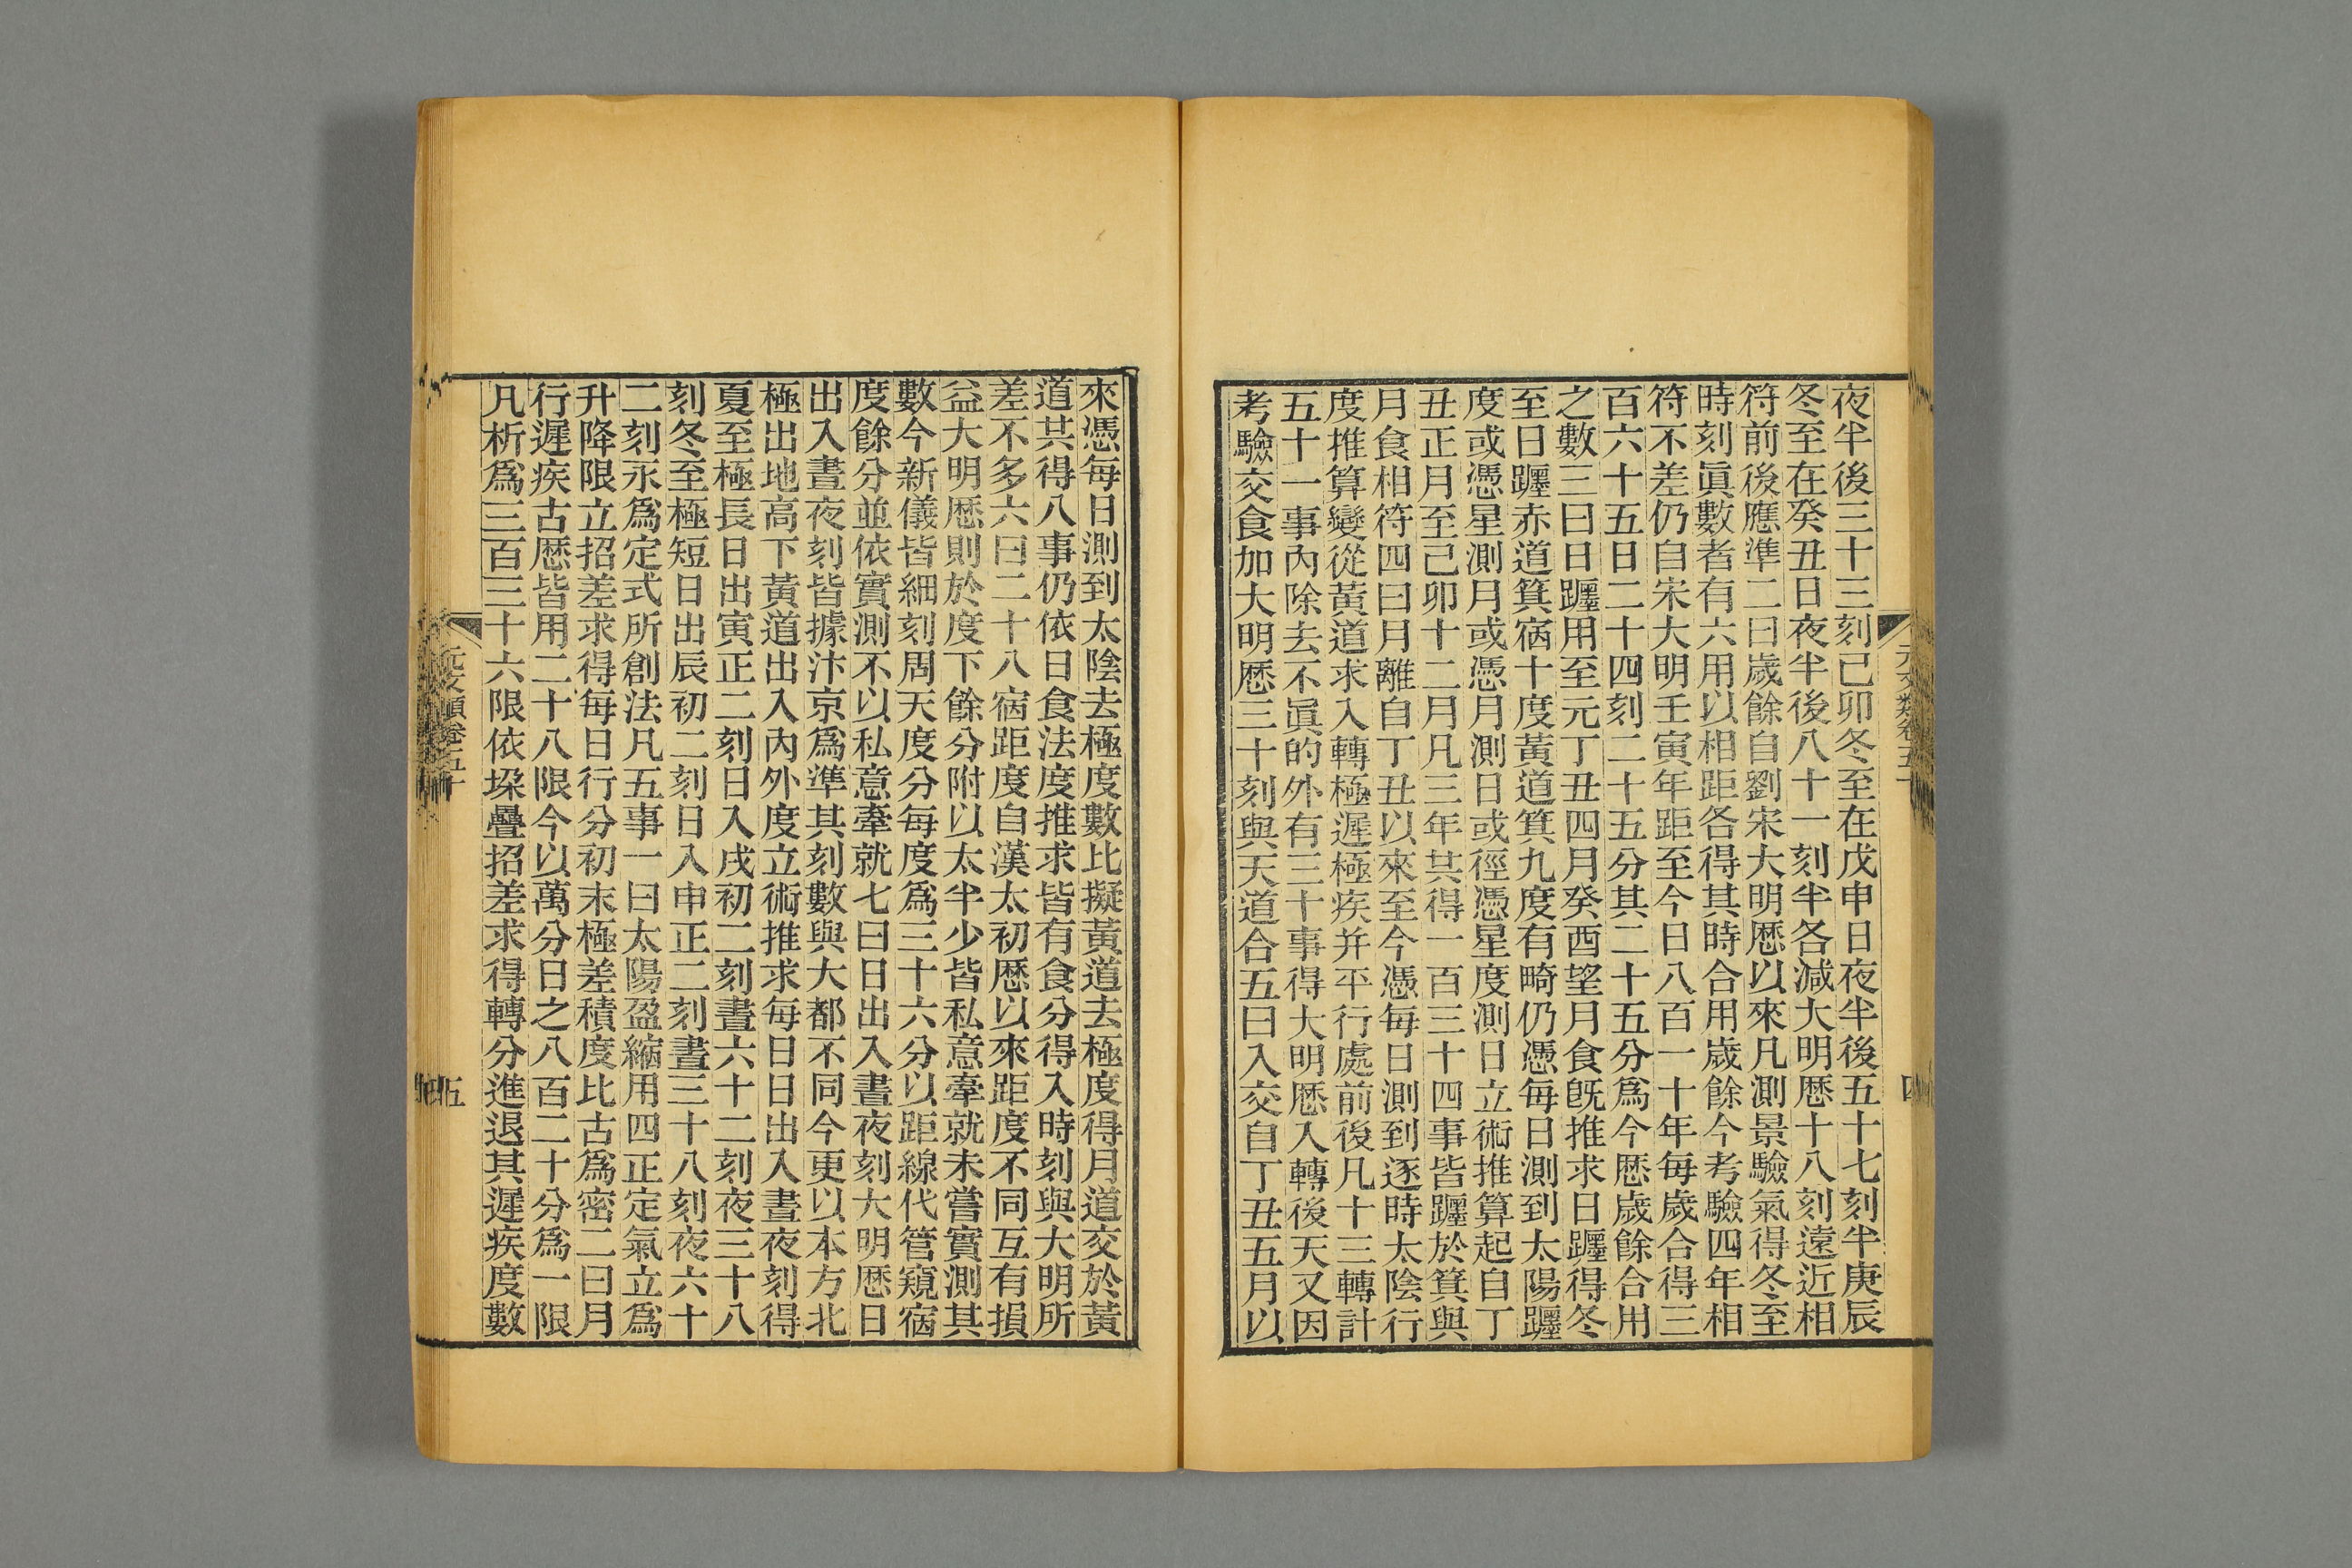 夜半後三十三刻己卯冬至在戊申日夜半後五十七刻半庚辰
冬至在癸丑日夜半後八十一刻半各減大明厯十八刻遠近相
符前後應準二曰歲餘自劉宋大明厯以來凡測景驗氣得冬至
時刻眞數者有六用以相距各得其時合用歲餘今考驗四年相
符不差仍自宋大明壬寅年距至今日八百一十年每歲合得三
百六十五日二十四刻二十五分其二十五分爲今厯歲餘合用
之數三曰日躔用至元丁丑四月癸酉望月食旣推求日躔得冬
至日躔赤道箕宿十度黃道箕九度有畸仍憑每日測到太陽躔
度或憑星測月或憑月測日或徑憑星度測日立術推算起自丁
丑正月至己卯十二月凡三年共得一百三十四事皆躔於箕與
月食相符四曰月離自丁丑以來至今憑每日測到逐時太陰行
度推算變從黃道求入轉極遲極疾并平行處前後凡十三轉計
五十一事內除去不眞的外有三十事得大明厯入轉後天又因
考驗交食加大明厯三十刻與天道合五曰入交自丁丑五月以
元文類卷五十
四
來憑每日測到太陰去極度數比擬黃道去極度得月道交於黃
道共得八事仍依日食法度推求皆有食分得入時刻與大明所
差不多六曰二十八宿距度自漢太初厯以來距度不同互有損
益大明厯則於度下餘分附以太半少皆私意牽就未嘗實測其
數今新儀皆細刻周天度分每度爲三十六分以距線代管窺宿
度餘分並依實測不以私意牽就七曰日出入晝夜刻大明厯日
出入晝夜刻皆據汴京爲準其刻數與大都不同今更以本方北
極出地高下黃道出入內外度立術推求每日日出入晝夜刻得
夏至極長日出寅正二刻日入戌初二刻晝六十二刻夜三十八
刻冬至極短日出辰初二刻日入申正二刻晝三十八刻夜六十
二刻永爲定式所創法凡五事一曰太陽盈縮用四正定氣立爲
升降限立招差求得每日行分初末極差積度比古爲密二曰月
行遲疾古厯皆用二十八限今以萬分日之八百二十分爲一限
凡析爲三百三十六限依垜疊招差求得轉分進退其遲疾度數
元文類卷五十
五